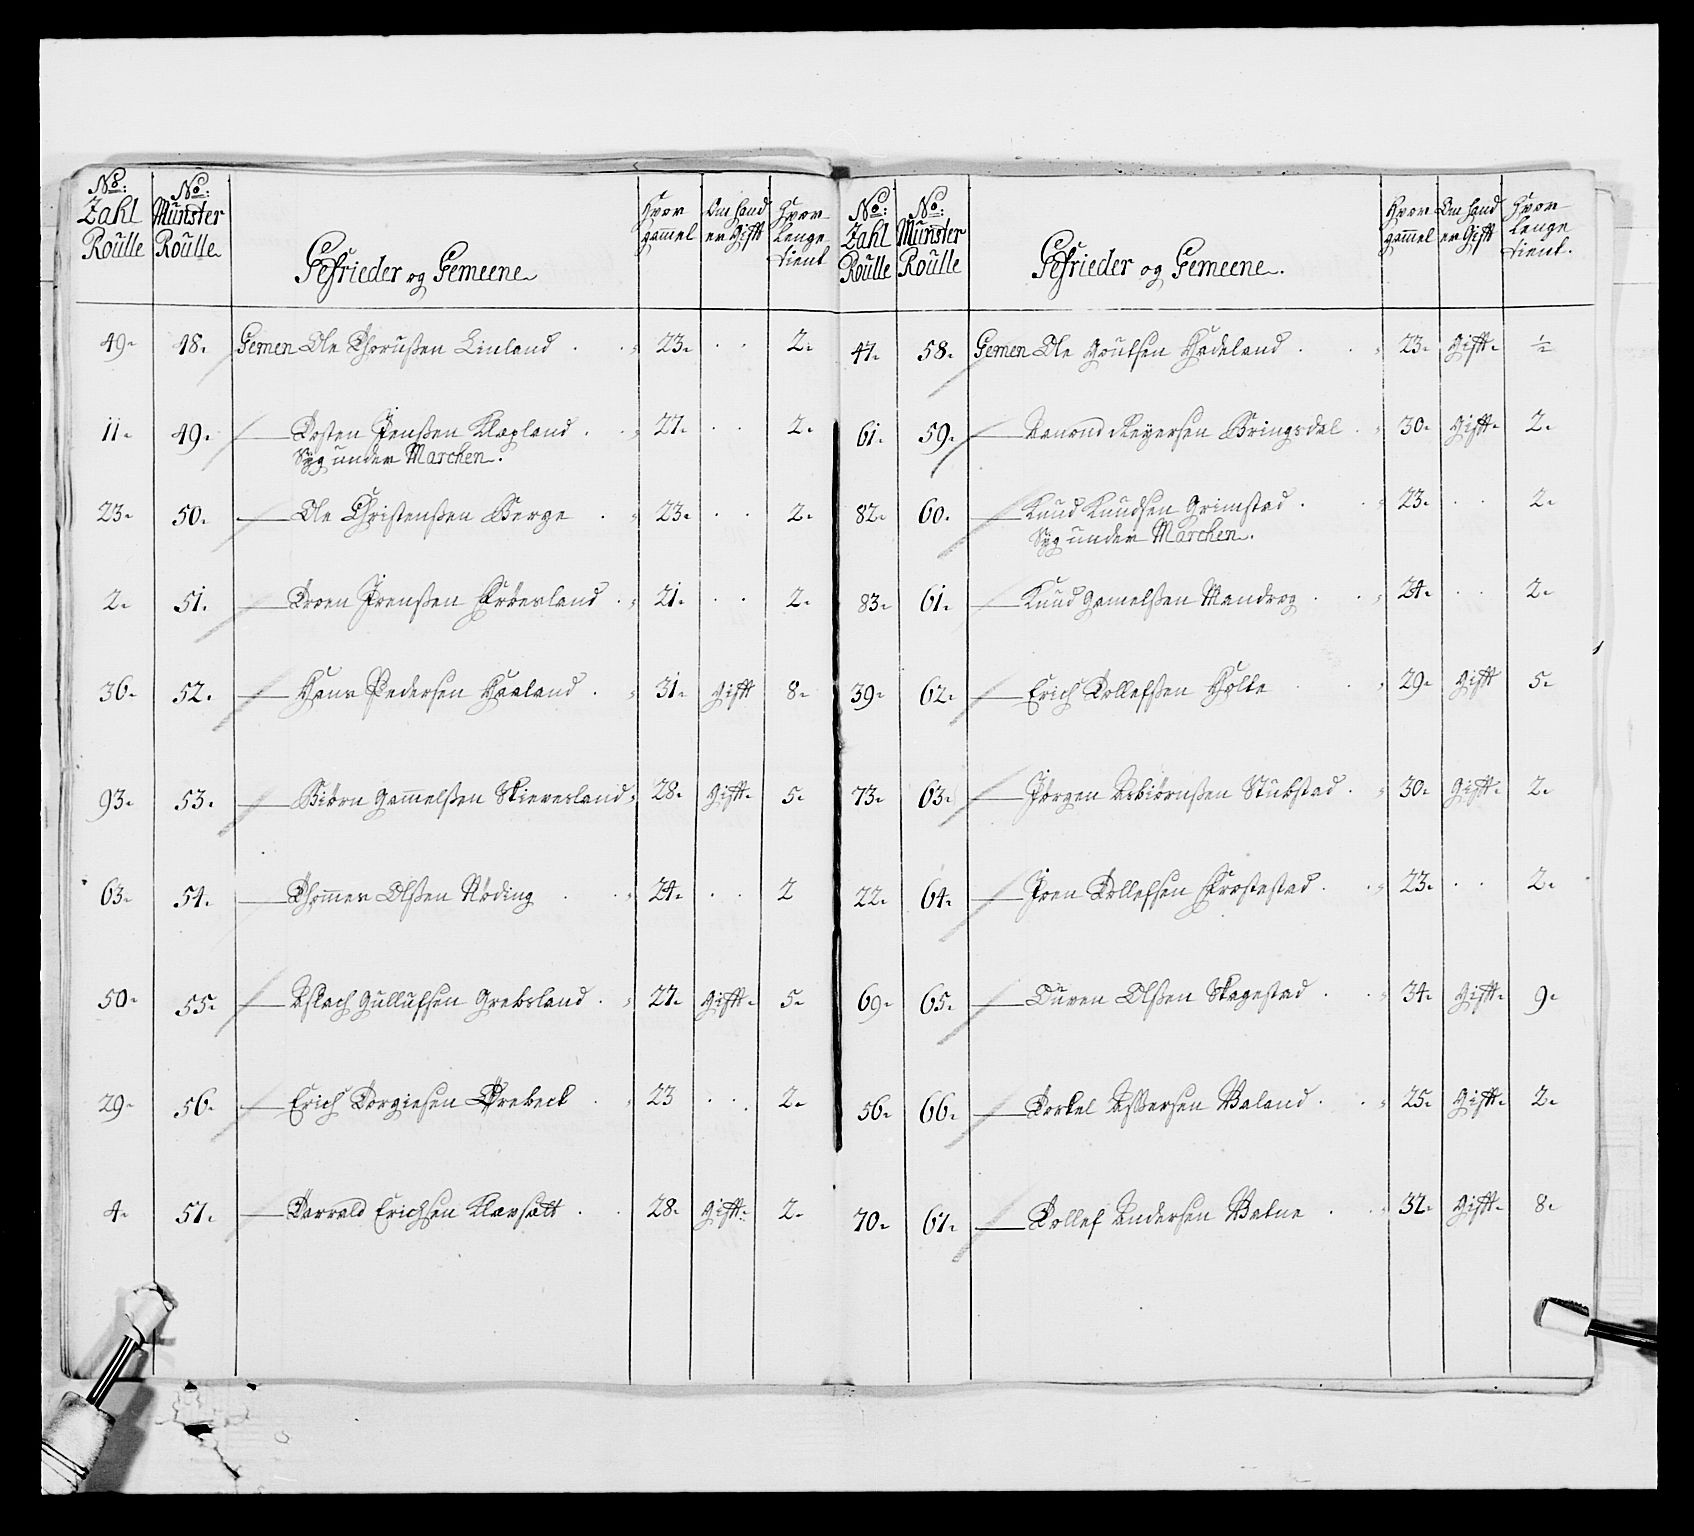 No: Zahl Roulle | No: Münster Roulle | Gefrieder og Gemeene | Hvor gammel | Om hand er Gifft | Hvor lenge tient
49 | 48. | Gemen Ole Thorußen Linland | 23 | . . | 2
11 | 49. | Tosten Jenßen Klepland | 27 | . . | 2
Syg under Marchen.
23 | 50. | Ole Christenßen Berge | 23 | . . | 2
2 | 51. | Troen Jrenßen Frøesland | 21 | . . | 2
36 | 52. | Hans Pedersen Haaland | 31 | Gifft | 8
93 | 53. | Biörn Gammelßen Skieresland | 28 | Gifft | 5
63 | 54. | Thommes Olßen Röding | 24 | . . | 2
50 | 55. | Aslach Gullufsen Grebsland | 27 | Gifft | 5
29 | 56. | Erich TorgiesenØrebeck | 23 | . . | 2
4 | 57. | Tarrald Erichsen | 28 | Gifft | 2
No: Zahl Roulle | No: Münster Roulle | Gefrieder og Gemeene. | Hvor gammel | Om hand er Gifft | Hvor lenge tient.
47 | 58. | Gemen Ole Goutsen Hadeland | 23 | Gifft | ½
61 | 59. | Vanond Reyersen Bringsdal | 30 | Gifft | 2
82 | 60. | Knud Knudsen Grimstad | 23 | . . | 2
Syg under Marchen.
83 | 61. | Knud Gamelßen Mandrog | 24 | . . | 2
39 | 62. | Erich Tollefßen Holte | 29 | Gifft | 5
73 | 63. | Jörgen Asbiörnßen Stubstad | 30 | Gifft | 2
22 | 64. | Jren Tollefsen Frostestad | 23 | . . | 2
69 | 65. | Ouven Olßen Skagestad | 34 | Gifft | 9
56 | 66. | Torkel Aßersen Valand | 25 | Gifft | 2
70 | 67. | Tollef Andersen Valne | 32 | Gifft | 8